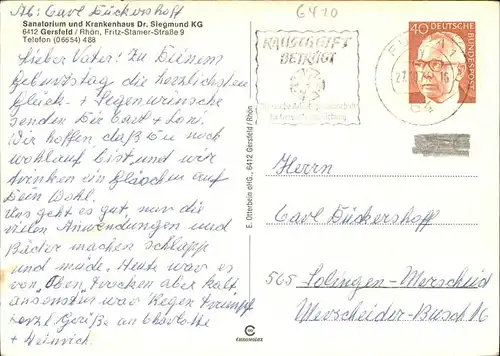 Ab: Carl Dückershoff
Sanatorium und Krankenhaus Dr. Siegmund KG
6412 Gersfeld / Rhön, Fritz-Stamer-Straße 9
Telefon (06654) 488
Lieber Vater: Zu Deinem
Geburtstag die herzlichsten
Glück- + Segenwünsche
senden Dir Carl + Loni.
Wir hoffen, daß Du noch
wohlauf bist und wir
trinken ein Gläschen auf
Dein Wohl.
Uns geht es gut, nur die
vielen Anwendungen und
Bäder machen schlapp
und müde. Heute war es
von "Oben" trocken aber kalt,
ansonsten war Regen Trumpf
Herzl. Grüße an Charlotte
+ Heinrich.
E. Otterbein oHG., 6412 Gersfeld / Rhön
CHROMOLUX
6420
RAUSCHGIFT
BETRÜGT
27.10.74-16
64
40
DEUTSCHE BUNDESPOST
Herrn
Carl Dückershoff
565 Solingen-Merscheid
Merscheider-Busch 16